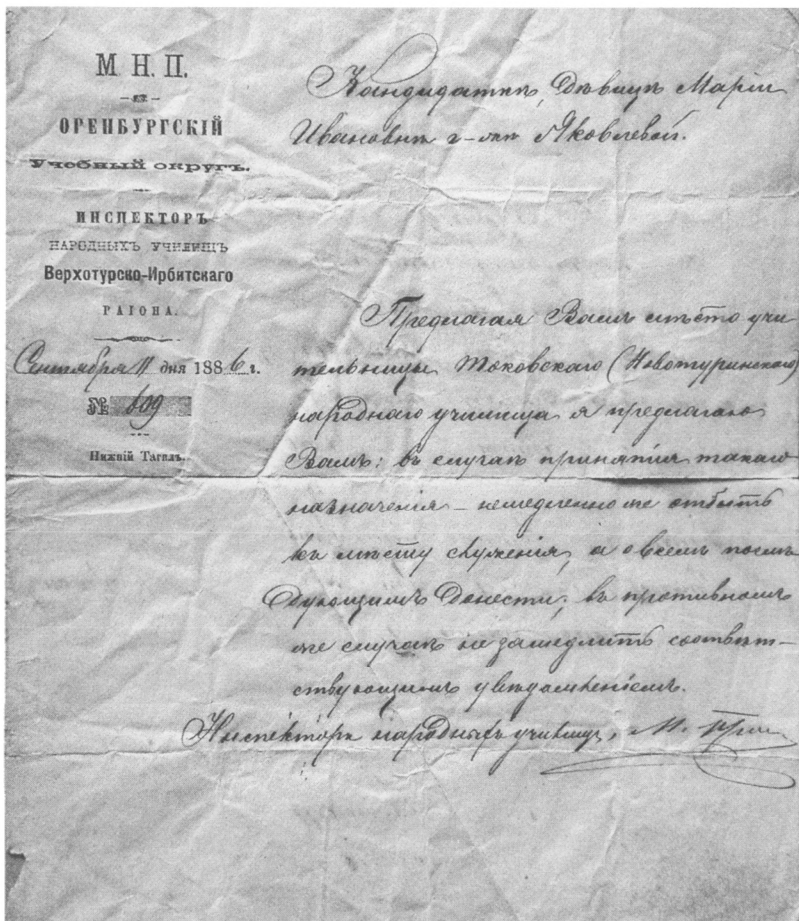 М. Н. П.
ОРЕНБУРГСКІЙ
Учебный округъ.
ИНСПЕКТОРЪ
НАРОДНЫХЪ УЧИЛИЩЪ
Верхотурско-Ирбитскаго
РАІОНА.
Сентября 11 дня 1886 г.
№ 609
Нижній Тагилъ.
Кандидаткѣ, Дѣвицѣ Маріи
Ивановнѣ г-жѣ Яковлевой.
Предлагая Вамъ мѣсто учи-
тельницы Токовскаго (Новотуринскаго)
народнаго училища я предлагаю
Вамъ: въ случаѣ принятія такого
назначенія – немедленно же отбыть
къ мѣсту служенія, а о всемъ послѣ-
дующемъ донести; въ противномъ
же случаѣ не замедлить соотвѣт-
ствующимъ увѣдомленіемъ.
Инспекторъ народныхъ училищъ, М.